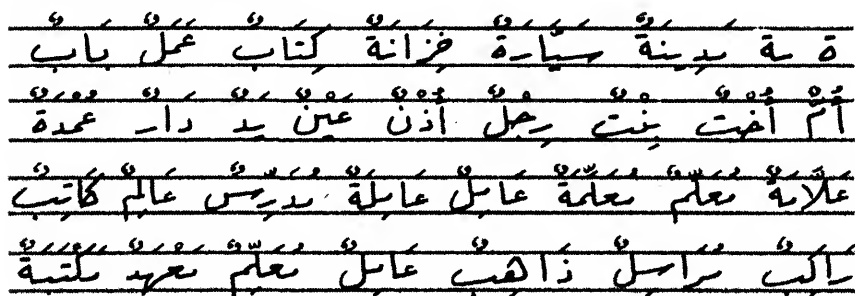 ة ـة مَدِينَةٌ سَيَّارَةٌ خِزَانَةٌ كِتَابٌ عَمَلٌ بَابٌ
أُمٌّ أُخْتٌ بِنْتٌ رِجْلٌ أُذْنٌ عَيْنٌ يَدٌ دَارٌ عُمْدَةٌ
عَلَّامَةٌ مُعَلِّمٌ مُعَلِّمَةٌ عَامِلٌ عَامِلَةٌ مُدَرِّسٌ عَالِمٌ كَاتِبٌ
رَاكِبٌ مُرَاسِلٌ ذَاهِبٌ عَامِلٌ مُعَلِّمٌ مَعْهَدٌ مَكْتَبَةٌ